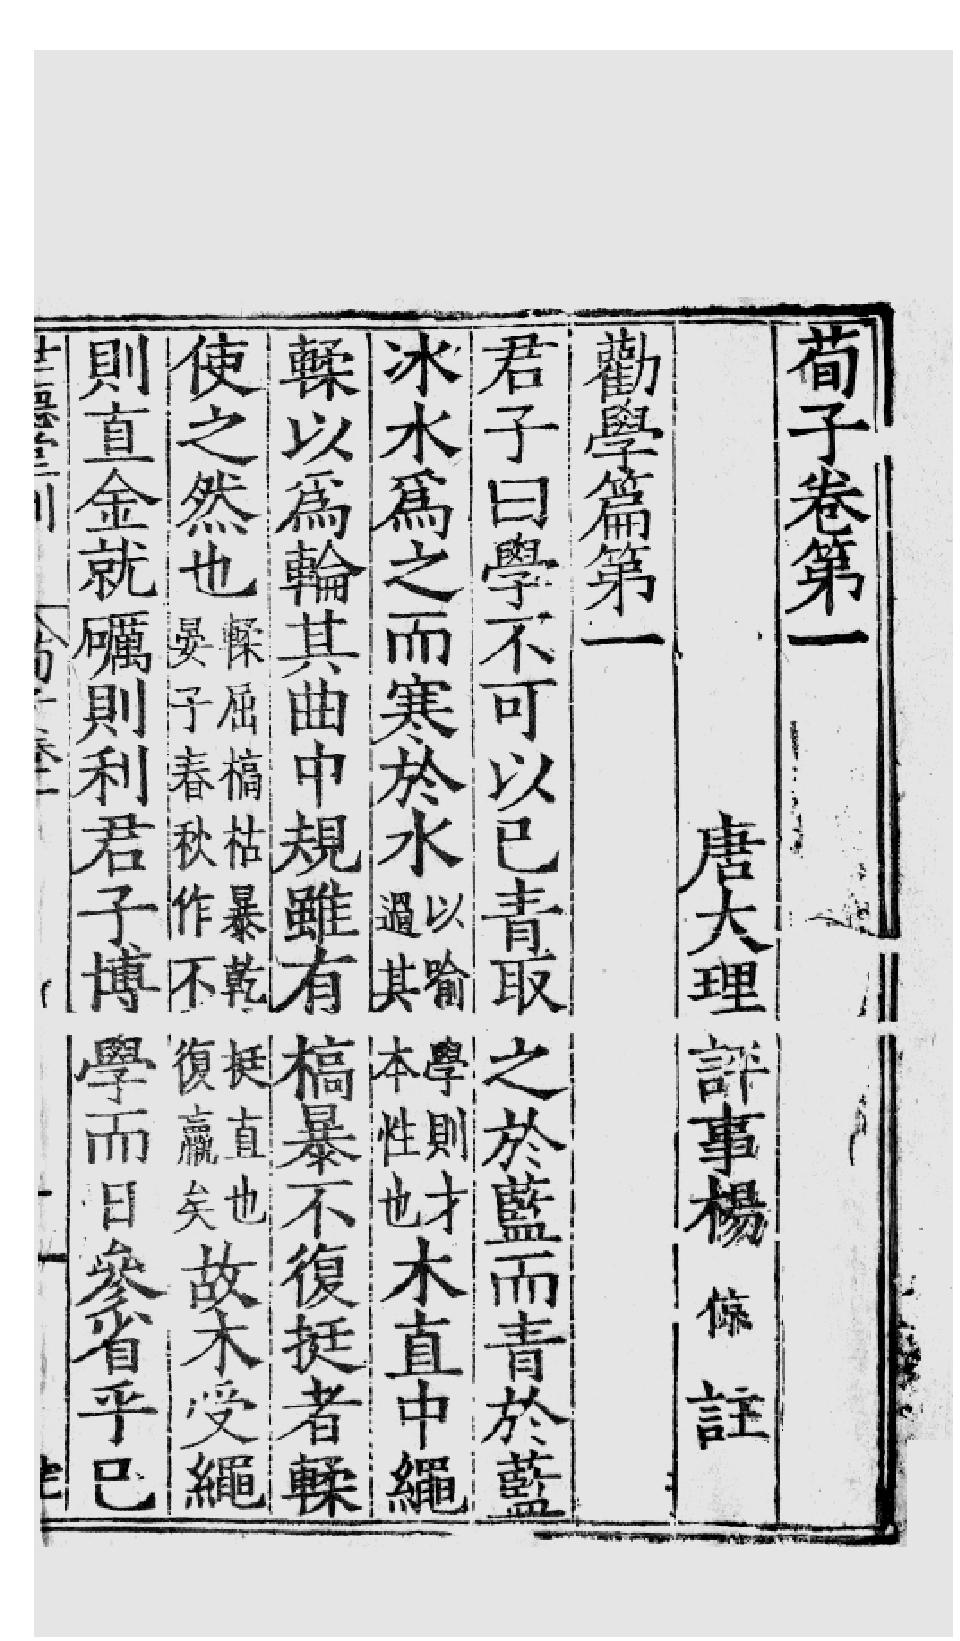 荀子卷第一
唐大理評事楊倞註
勸學篇第一
君子曰學不可以已青取之於藍而青於藍
冰水爲之而寒於水以喻學則才過其本性也木直中繩
輮以爲輪其曲中規雖有槁暴不復挺者輮
使之然也輮屈槁枯暴乾挺直也晏子春秋作不復羸矣故木受繩
則直金就礪則利君子博學而日參省乎已
世德堂刊